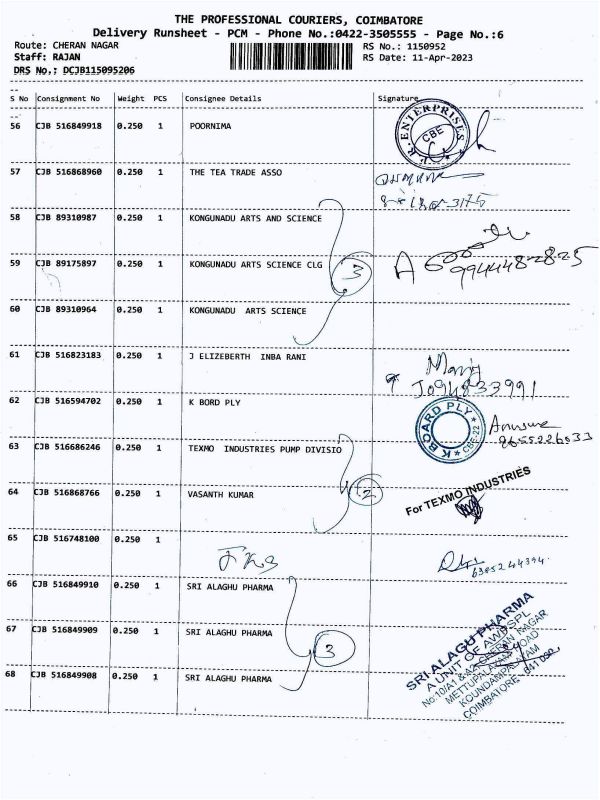 THE PROFESSIONAL COURIERS, COIMBATORE
Delivery Runsheet - PCM - Phone No.:0422-3505555 - Page No.:6
Route: CHERAN NAGAR RS No.: 1150952
Staff: RAJAN RS Date: 11-Apr-2023
DRS No.: DCJB115095206
S No Consignment No Weight PCS Consignee Details Signature
56 CJB 516849918 0.250 1 POORNIMA
R. ENTERPRISES CBE
57 CJB 516868960 0.250 1 THE TEA TRADE ASSO
58 CJB 89310987 0.250 1 KONGUNADU ARTS AND SCIENCE
59 CJB 89175897 0.250 1 KONGUNADU ARTS SCIENCE CLG 3
9944482825
60 CJB 89310964 0.250 1 KONGUNADU ARTS SCIENCE
61 CJB 516823183 0.250 1 J ELIZEBERTH INBA RANI
62 CJB 516594702 0.250 1 K BORD PLY
K BOARD PLY CBE-22
63 CJB 516686246 0.250 1 TEXMO INDUSTRIES PUMP DIVISIO
64 CJB 516868766 0.250 1 VASANTH KUMAR 2
For TEXMO INDUSTRIES
65 CJB 516748100 0.250 1
66 CJB 516849910 0.250 1 SRI ALAGHU PHARMA
67 CJB 516849909 0.250 1 SRI ALAGHU PHARMA 3
68 CJB 516849908 0.250 1 SRI ALAGHU PHARMA
SRI ALAGU PHARMA
A UNIT OF AWDSPL
CHERAN NAGAR
METTUPALAYAM ROAD
KOUNDAMPALAYAM
COIMBATORE